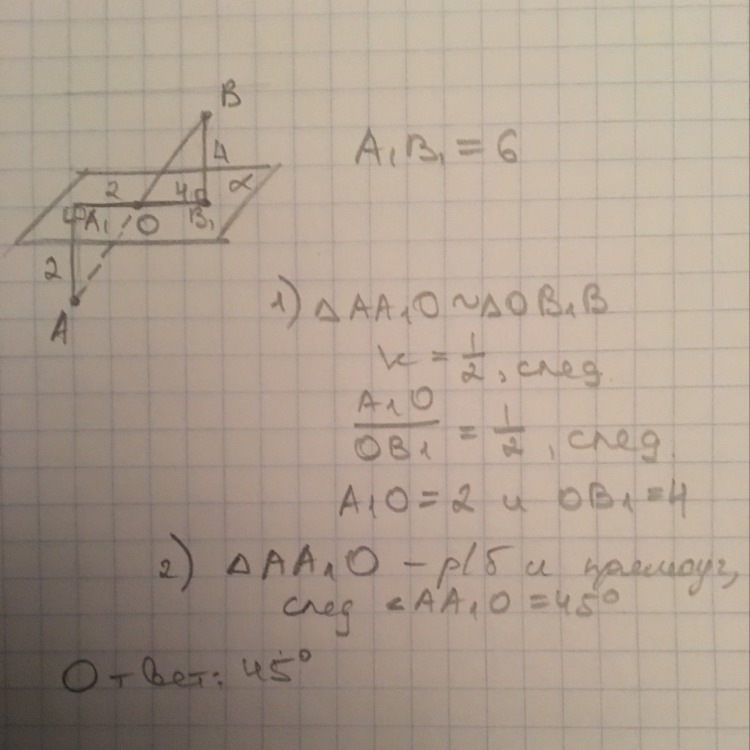 B
4
A₁B₁ = 6
2 4 α
A₁ O B₁
2
A
1) △AA₁O ~ △OB₁B
k = 1/2, след
A₁O/OB₁ = 1/2, след.
A₁O = 2 и OB₁ = 4
2) △AA₁O – р/б и прямоуг,
след <AA₁O = 45°
Ответ: 45°